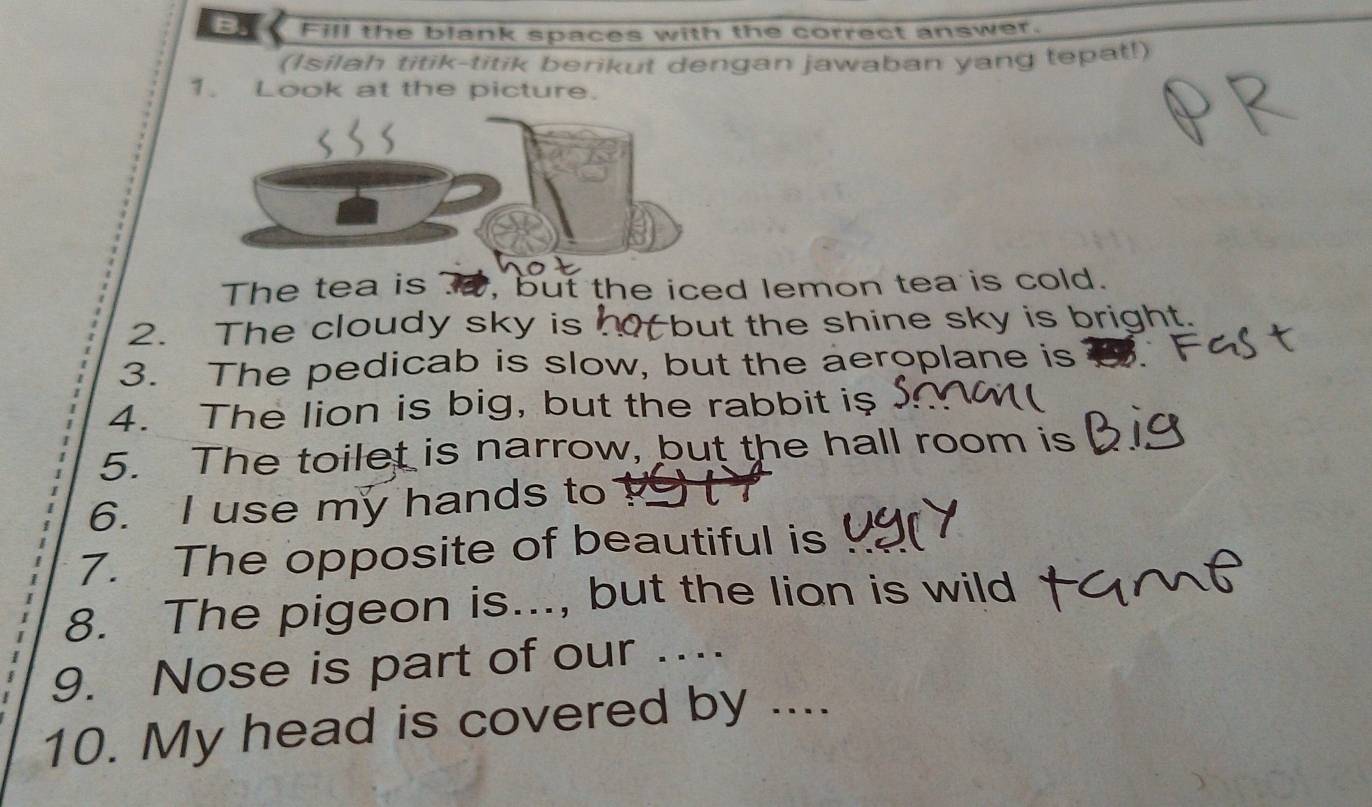 B. Fill the blank spaces with the correct answer.
(Isilah titik-titik berikut dengan jawaban yang tepat!)
PR
1. Look at the picture.
hot
The tea is ..., but the iced lemon tea is cold.
2. The cloudy sky is hot but the shine sky is bright.
3. The pedicab is slow, but the aeroplane is .... Fast
4. The lion is big, but the rabbit is small
5. The toilet is narrow, but the hall room is Big
6. I use my hands to ugly
7. The opposite of beautiful is ugly
8. The pigeon is..., but the lion is wild tame
9. Nose is part of our ....
10. My head is covered by ....